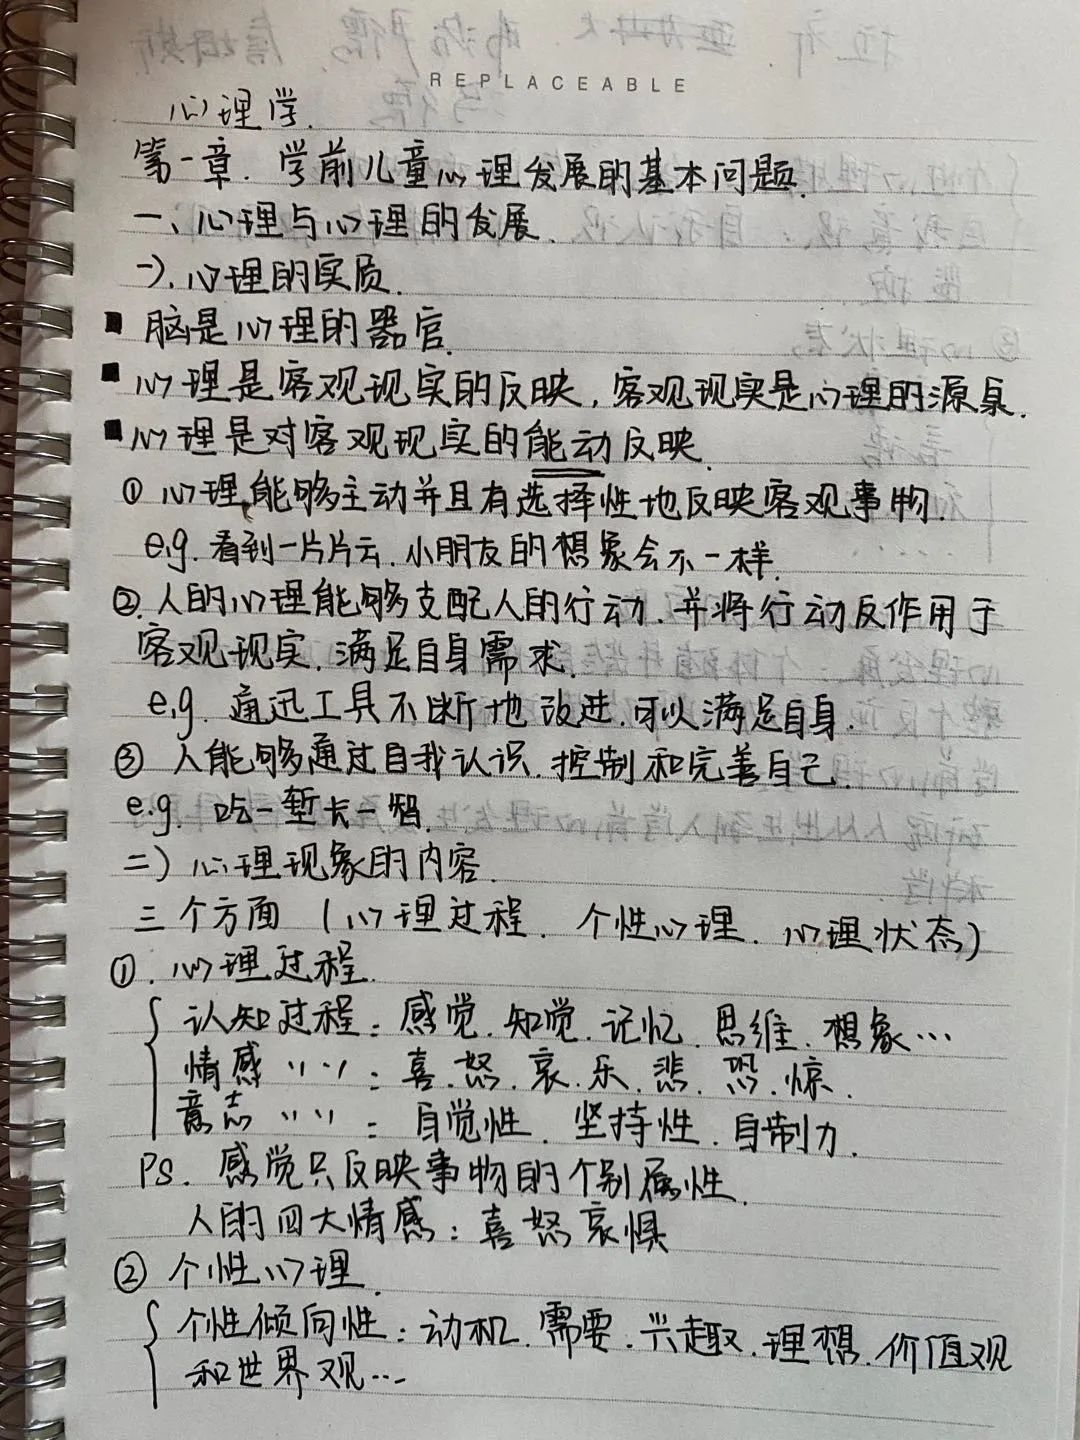 REPLACEABLE
心理学.
第一章. 学前儿童心理发展的基本问题.
一、心理与心理的发展.
一). 心理的实质.
■ 脑是心理的器官.
■ 心理是客观现实的反映, 客观现实是心理的源泉.
■ 心理是对客观现实的能动反映.
① 心理能够主动并且有选择性地反映客观事物.
e.g. 看到一片片云, 小朋友的想象会不一样.
②. 人的心理能够支配人的行动, 并将行动反作用于
客观现实, 满足自身需求.
e.g. 通迅工具不断地改进, 可以满足自身.
③ 人能够通过自我认识, 控制和完善自己.
e.g. 吃一堑长一智.
二) 心理现象的内容.
三个方面 (心理过程、个性心理、心理状态)
①. 心理过程.
认知过程: 感觉、知觉、记忆、思维、想象…
情感 〃〃: 喜、怒、哀、乐、悲、恐、惊.
意志 〃〃: 自觉性、坚持性、自制力.
PS. 感觉只反映事物的个别属性.
人的四大情感: 喜怒哀惧
② 个性心理.
个性倾向性: 动机、需要、兴趣、理想、价值观
和世界观…